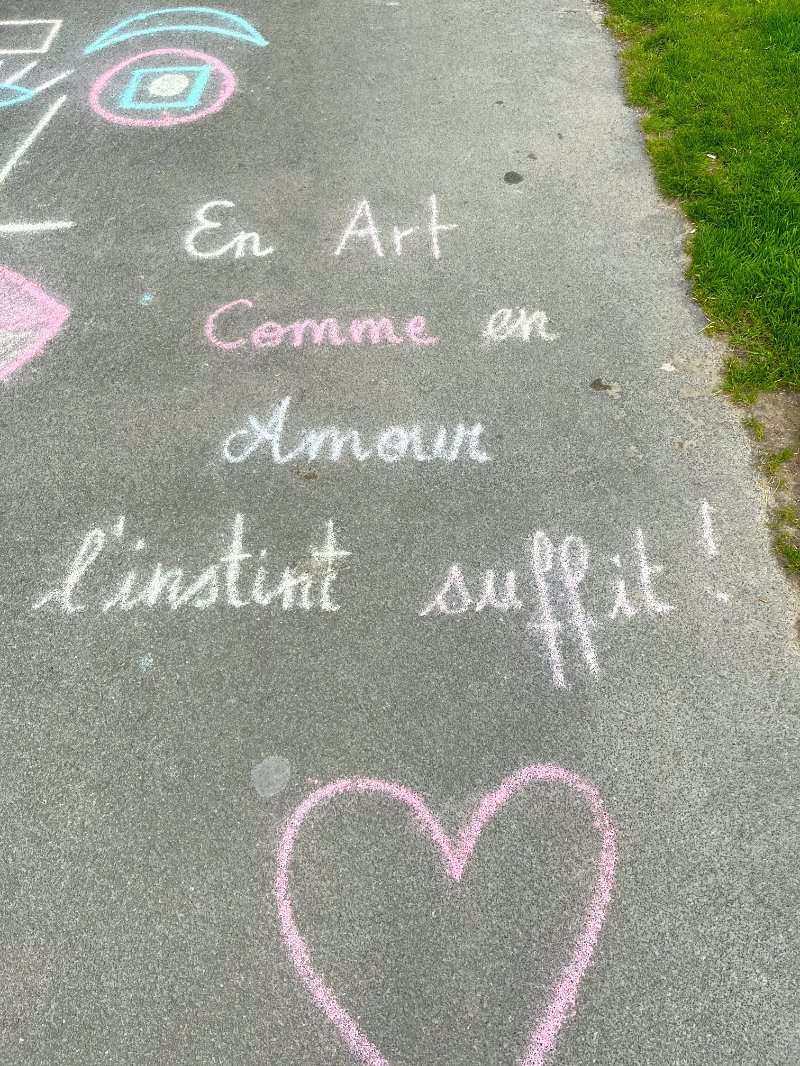 En Art
Comme en
Amour
l'instint suffit !